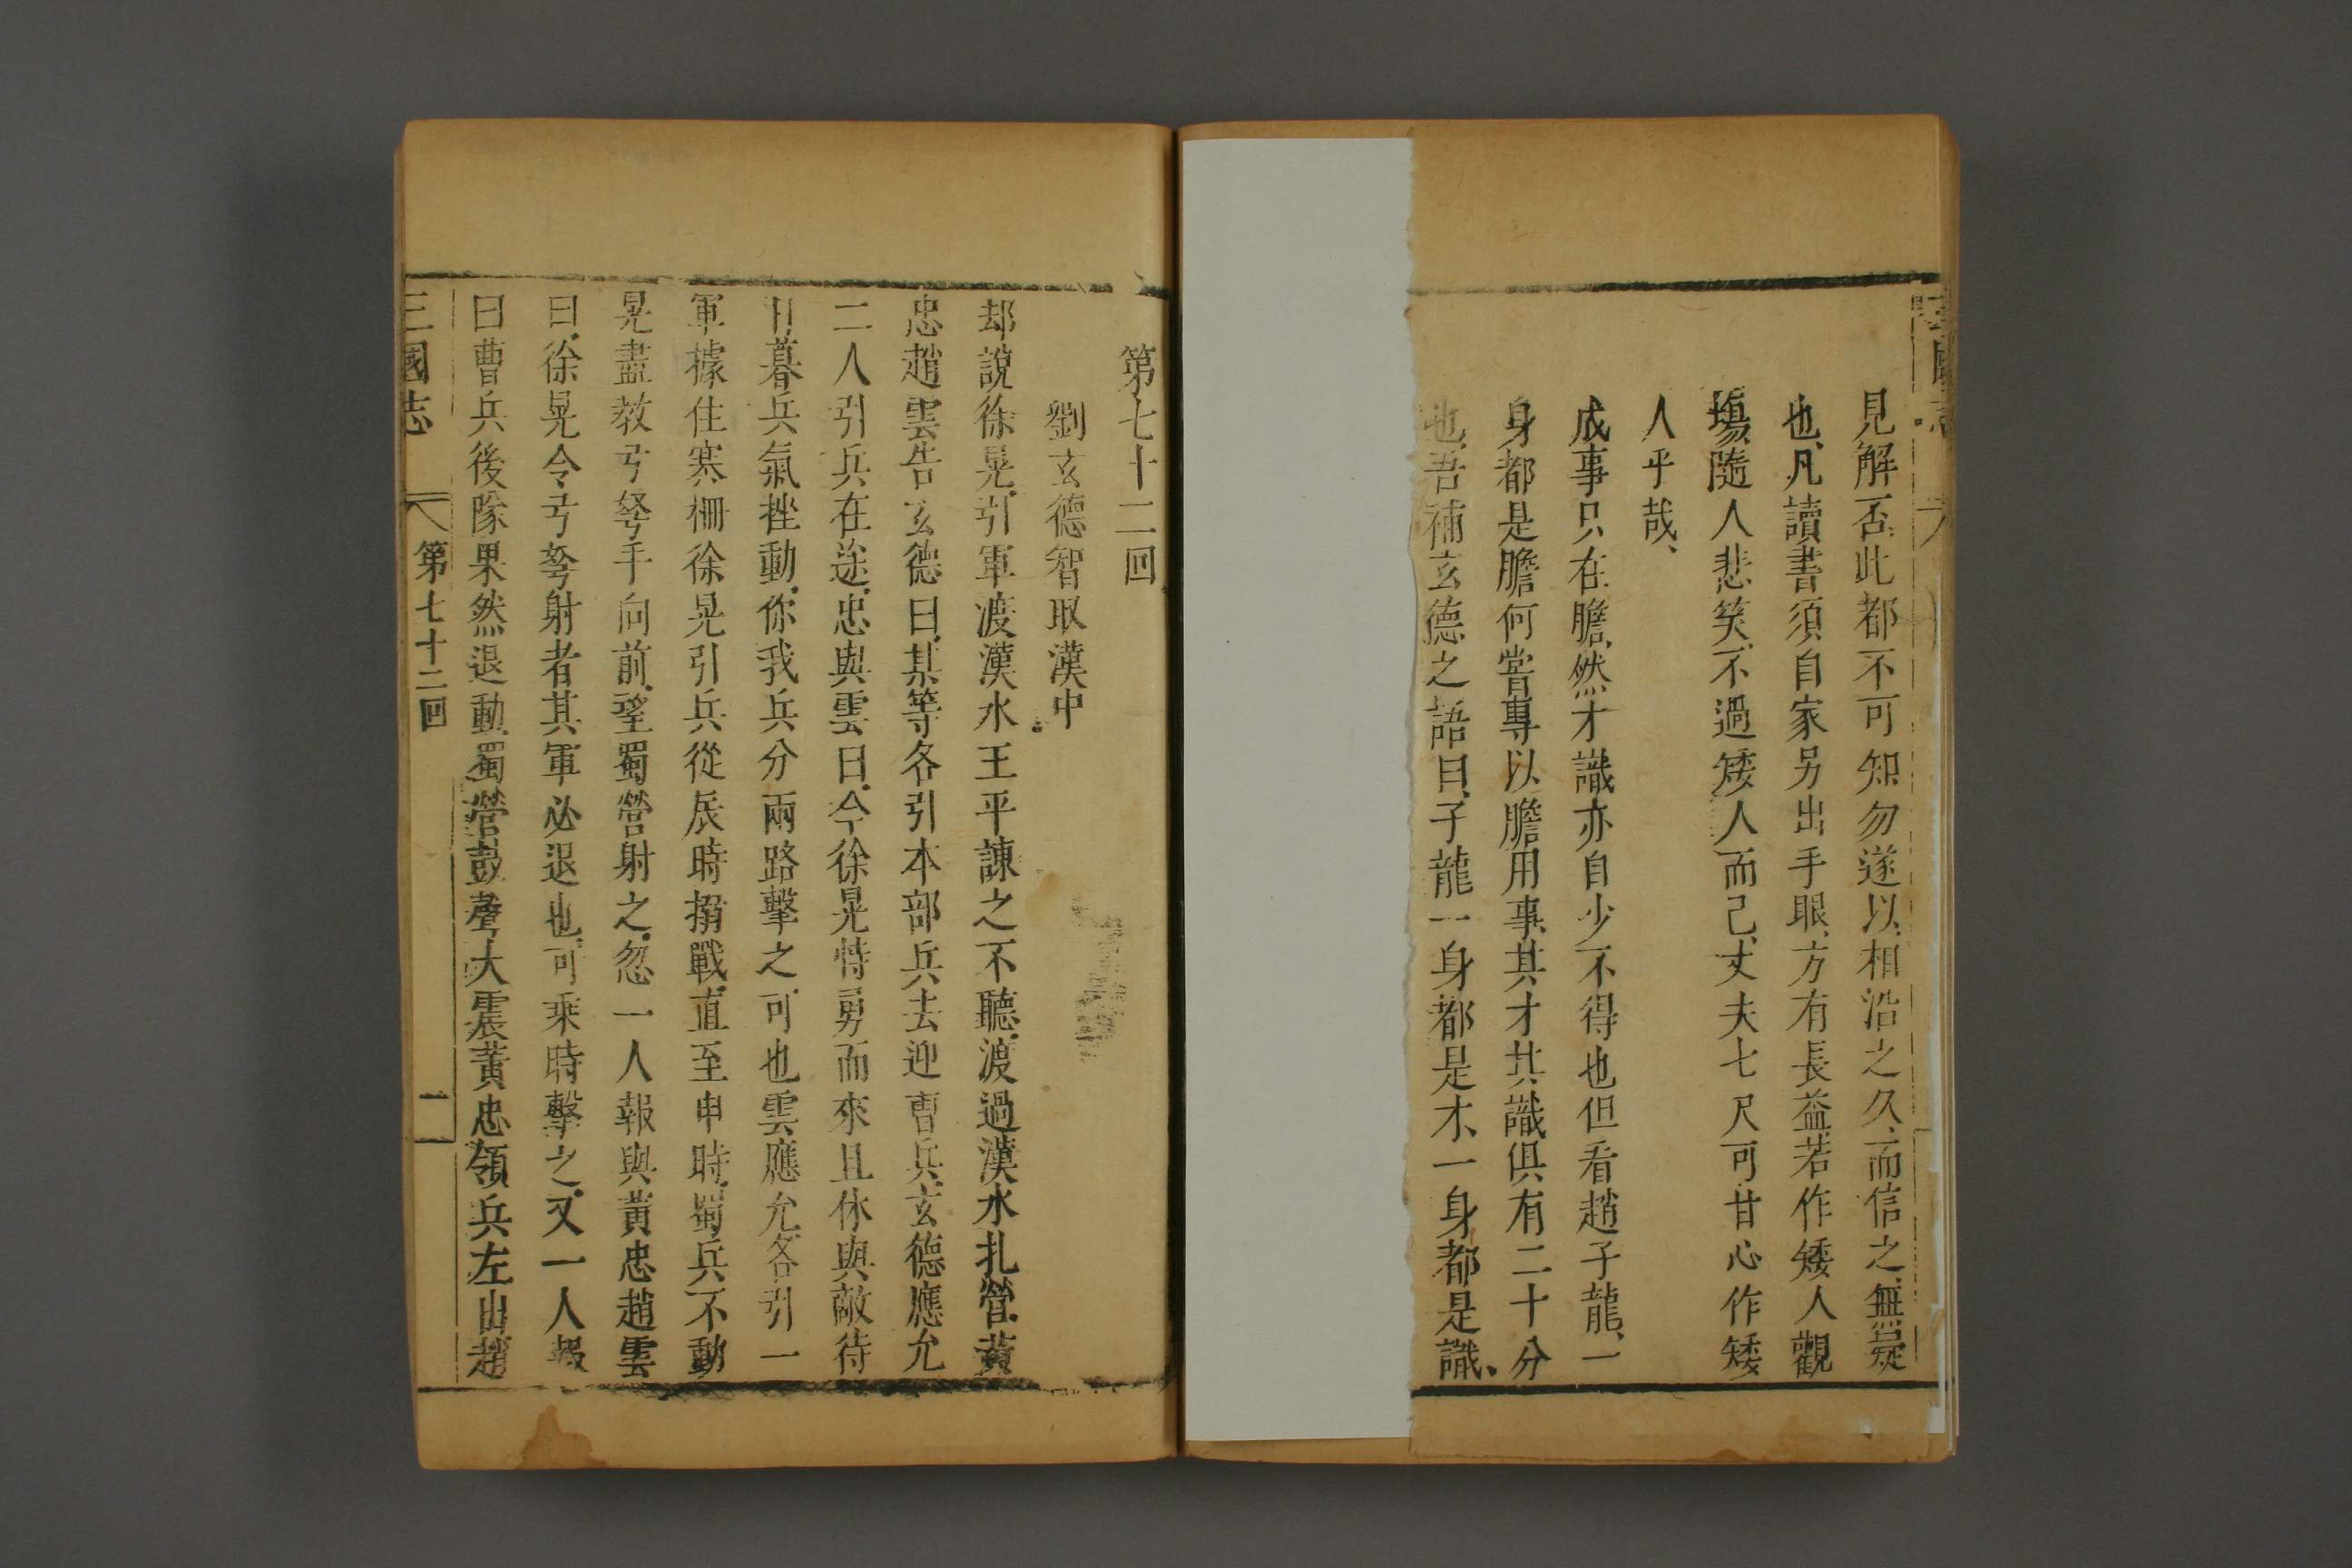 見解否此都不可知勿遂以相沿之久而信之無疑
也凡讀書須自家另出手眼方有長益若作矮人觀
場隨人悲笑不過矮人而已丈夫七尺可甘心作矮
人乎哉
成事只在膽然才識亦自少不得也但看趙子龍一
身都是膽何嘗專以膽用事其才其識俱有二十分
也吾補玄德之語曰子龍一身都是才一身都是識
第七十二回
劉玄德智取漢中
却說徐晃引軍渡漢水王平諫之不聽渡過漢水扎營黃
忠趙雲告玄德曰某等各引本部兵去迎曹兵玄德應允
二人引兵在途忠與雲曰今徐晃恃勇而來且休與敵待
日暮兵氣挫動你我兵分兩路擊之可也雲應允各引一
軍據住寨柵徐晃引兵從辰時搦戰直至申時蜀兵不動
晃盡教弓弩手向前望蜀營射之忽一人報與黃忠趙雲
曰徐晃令弓弩射者其軍必退也可乘時擊之又一人報
曰曹兵後隊果然退動蜀營鼓聲大震黃忠領兵左出趙
三國志
第七十二回
一